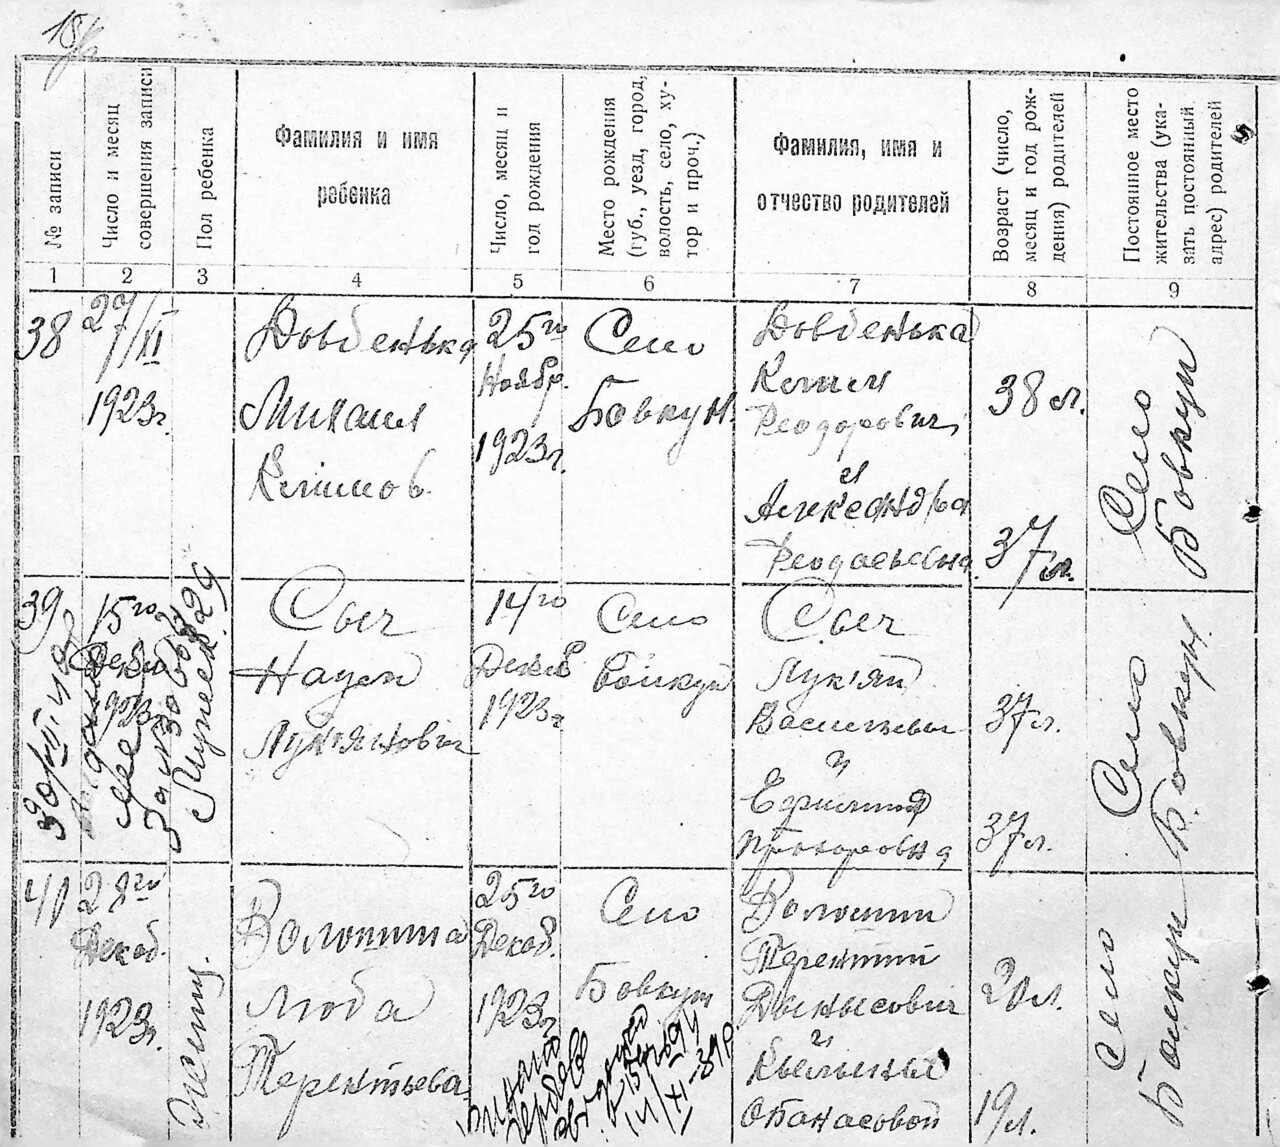 18/2
№ записи
Число и месяц
совершения записи
Пол ребенка
Фамилия и имя
ребенка
Число, месяц и
год рождения
Место рождения
(губ., уезд, город,
волость, село, ху-
тор и проч.)
Фамилия, имя и
отчество родителей
Возраст (число,
месяц и год рож-
дения) родителей
Постоянное место
жительства (ука-
зать постоянный
адрес) родителей
1 2 3 4 5 6 7 8 9
38
27/XI
1923г.
Довбенька
Михаил
Климов
25го
Ноябр.
1923г.
Село
Бовкун.
Довбенька
Клим
Феодорович
и
Александра
38 л.
37 л.
Село
Бовкун
39
15го
Декб
1923г.
Сыч
Наум
Лукянович
14го
Декб
1923г
Село
Бовкун
Сыч
Лукян
Васильевич
и
Прохоровна
37 л.
37 л.
Село
Бовкун
41
28го
Декаб.
1923г.
женщ.
Волошина
Люба
Терентьева
25го
Декаб.
1923г
Село
Бовкун
Волошин
Терентий
Данысович
и
Опанасовой
20 л.
19 л.
Село
Бовкун